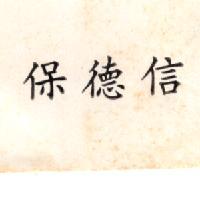 保德信